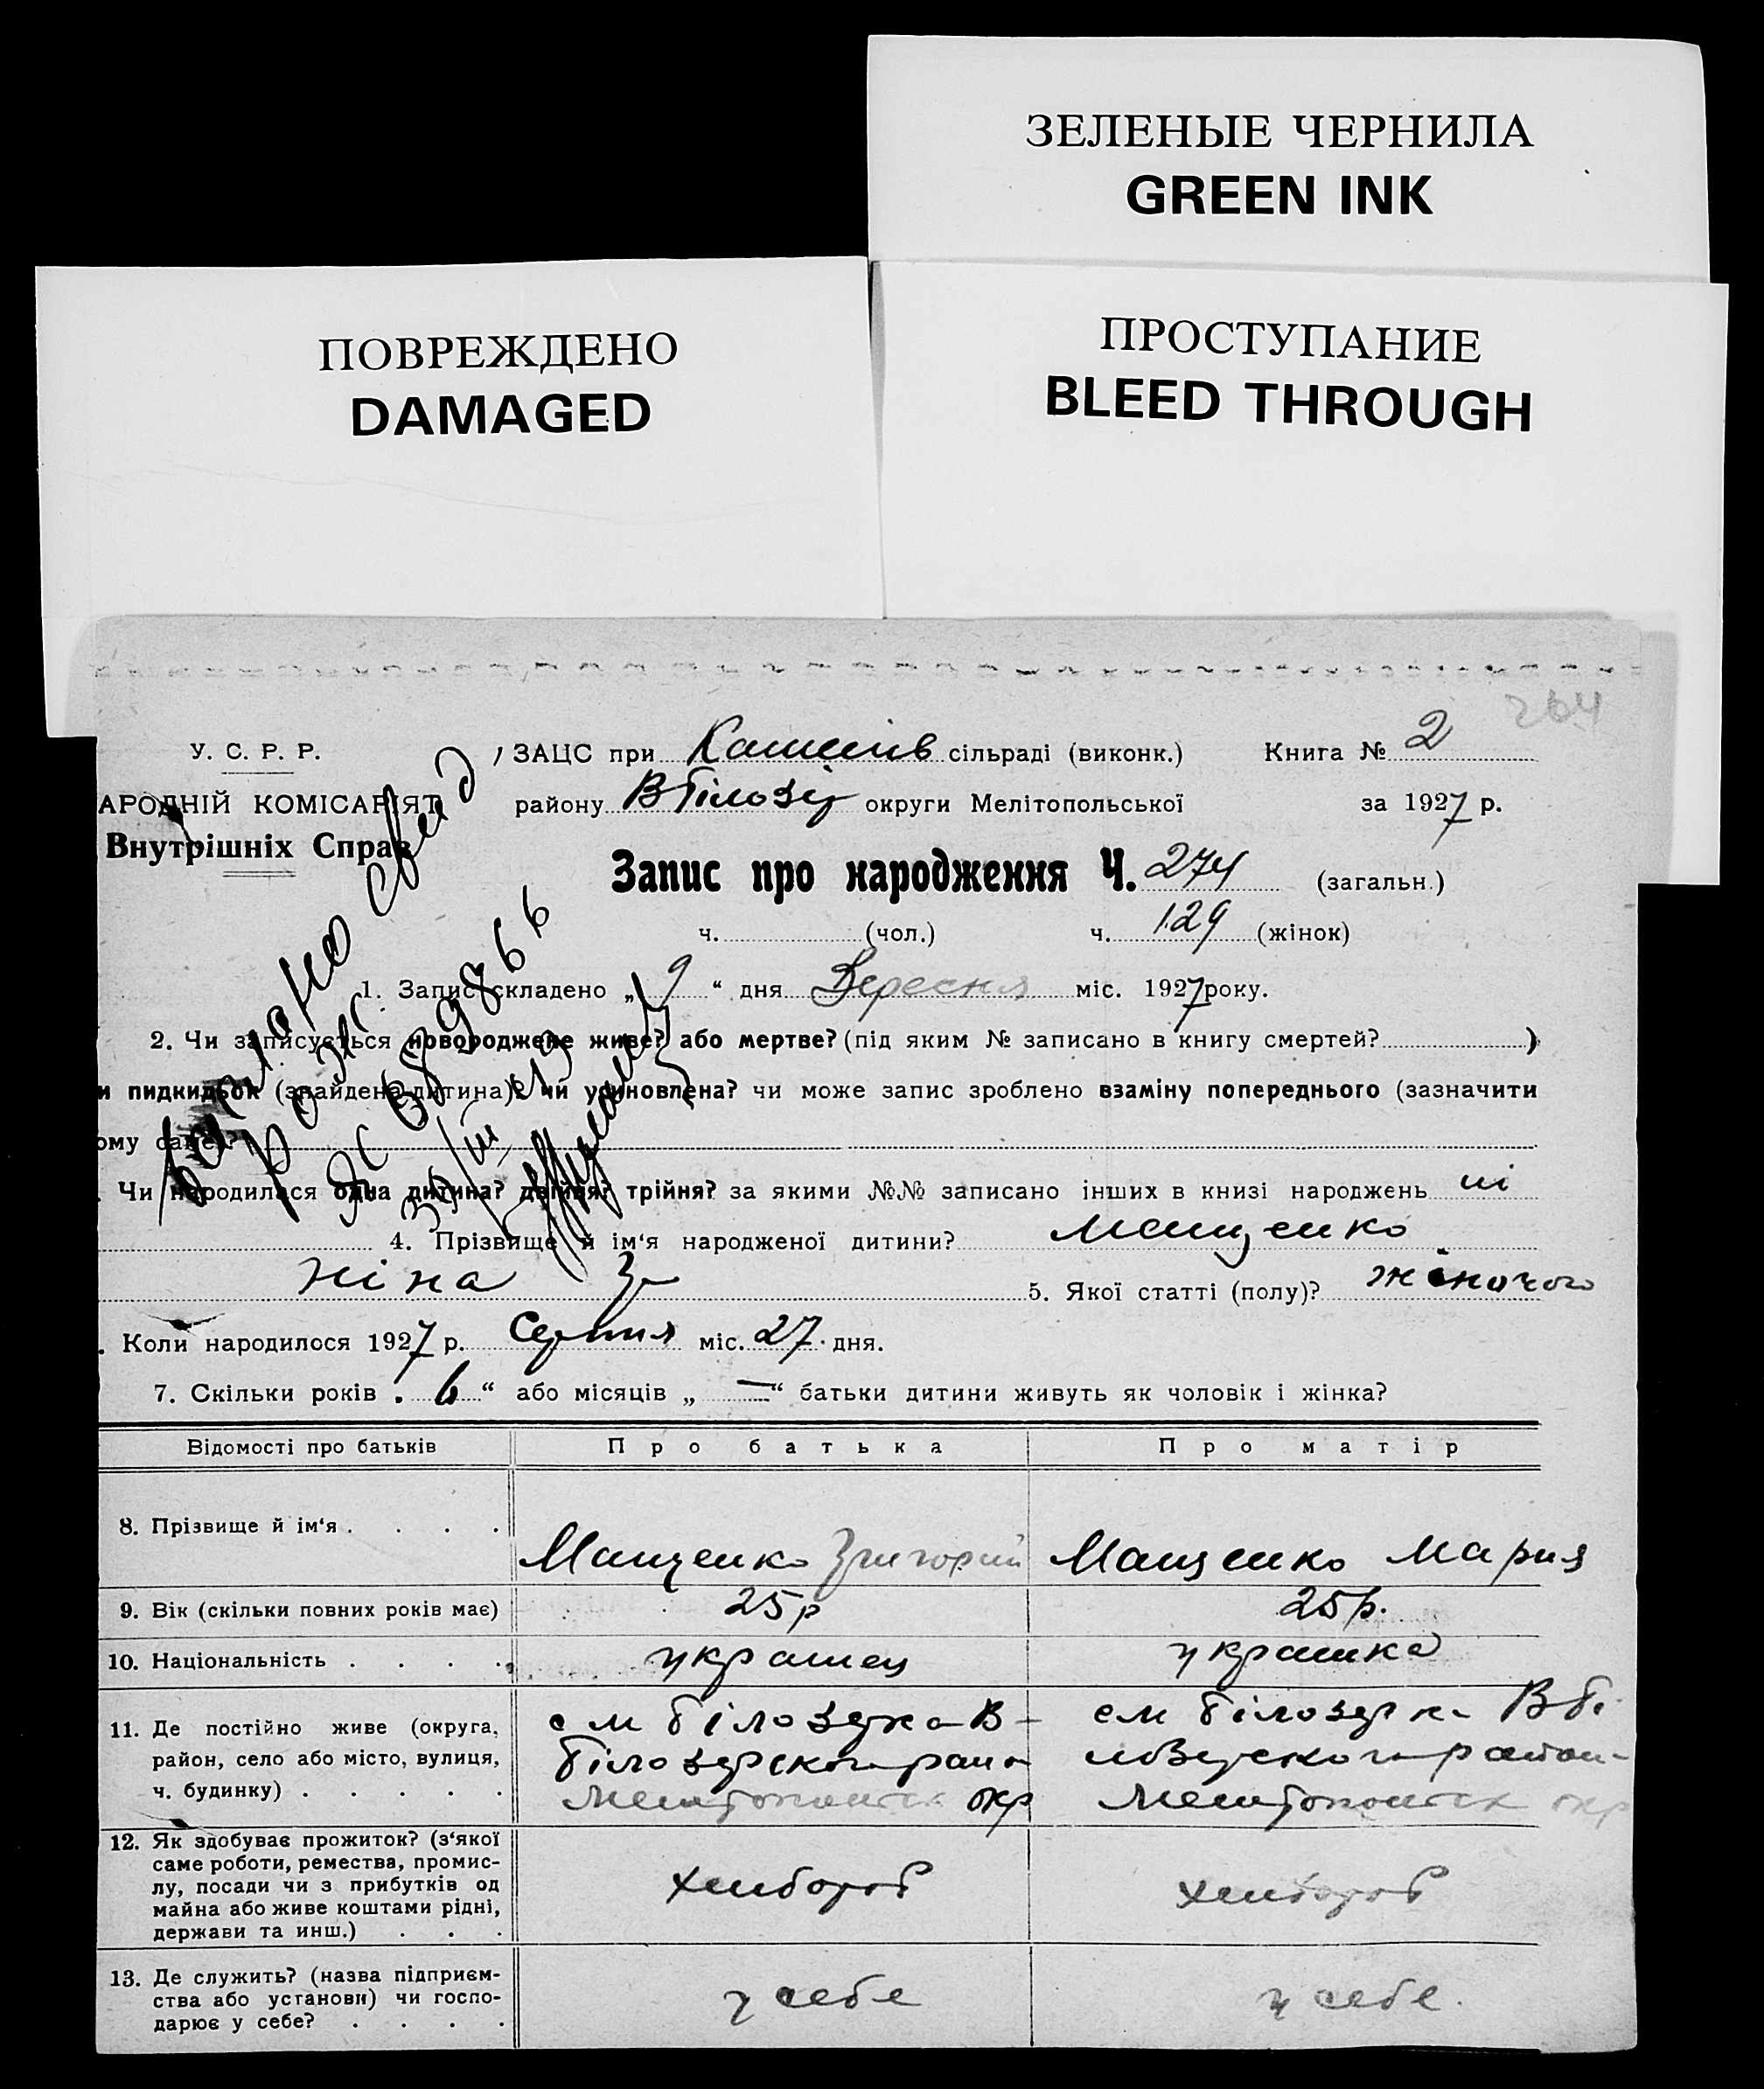 ЗЕЛЕНЫЕ ЧЕРНИЛА
GREEN INK
ПОВРЕЖДЕНО
DAMAGED
ПРОСТУПАНИЕ
BLEED THROUGH
264
У. С. Р. Р.
АРОДНІЙ КОМІСАРІЯТ
Внутрішніх Справ
ЗАЦС при сільраді (виконк.) Книга № 2
району В Білозір округи Мелітопольської за 1927 р.
Запис про народження Ч. 274 (загальн.)
ч. (чол.) ч. 129 (жінок)
1. Запис складено „ 9 “ дня Вересня міс. 1927 року.
2. Чи записується новороджене живе? або мертве? (під яким № записано в книгу смертей? )
и пидкидьок (знайдена дитина)? чи усиновлена? чи може запис зроблено взаміну попереднього (зазначити
ому саме)?
. Чи народилася одна дитина? двійня? трійня? за якими №№ записано інших в книзі народжень ні
4. Прізвище й ім‘я народженої дитини? Мащенко
Ніна 5. Якої статті (полу)? жіночого
. Коли народилося 1927 р. Серпня міс. 27 дня.
7. Скільки років „ 6 “ або місяців „ — “ батьки дитини живуть як чоловік і жінка?
Відомості про батьків Про батька Про матір
8. Прізвище й ім‘я . . . . Мащенко Григорий Мащенко Мария
9. Вік (скільки повних років має) 25 р 25 р.
10. Національність . . . . украинец украинка
11. Де постійно живе (округа, см Білозерка В- см Білозерка В Бі
район, село або місто, вулиця, Білозерского райо лозерского район
ч. будинку) . . . . . Мелитопольск окр Мелитопольск окр
12. Як здобуває прожиток? (з‘якої
саме роботи, ремества, промис-
лу, посади чи з прибутків од хлибороб хлибороб
майна або живе коштами рідні,
держави та инш.) . . .
13. Де служить? (назва підприєм-
ства або установи) чи госпо- у себе у себе.
дарює у себе? . . . .